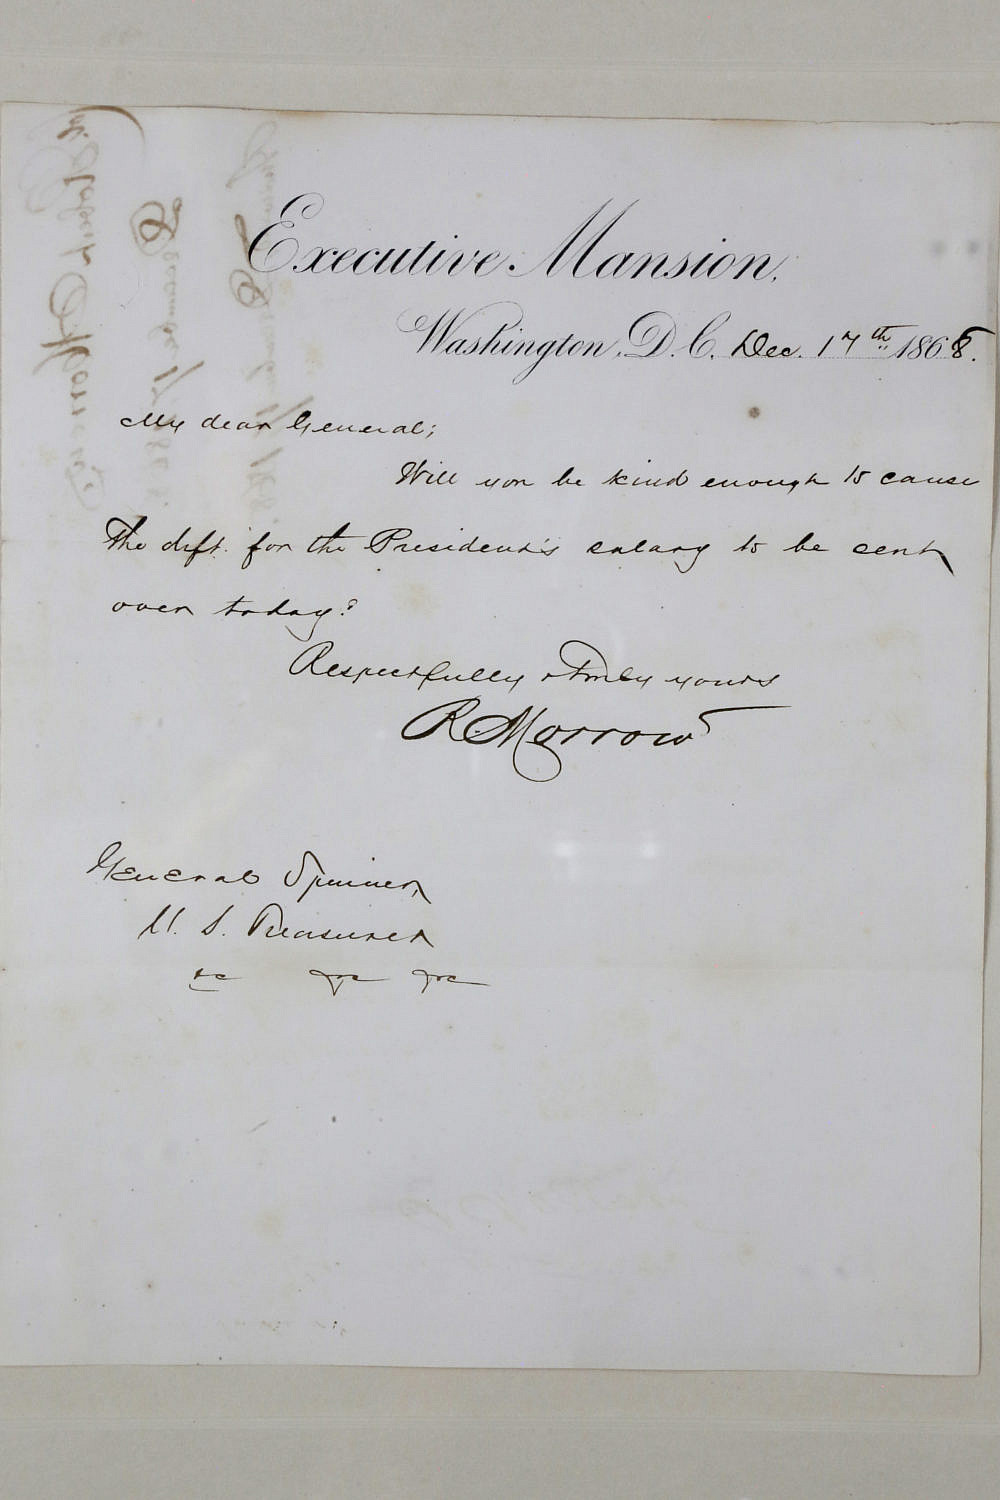 Executive Mansion,
Washington, D.C. Dec. 17th 1868.
My dear General;
Will you be kind enough to cause
the dft. for the President's salary to be sent
over today?
Respectfully & truly yours
R. Morrow
General Spinner,
U. S. Treasurer
&c &c &c